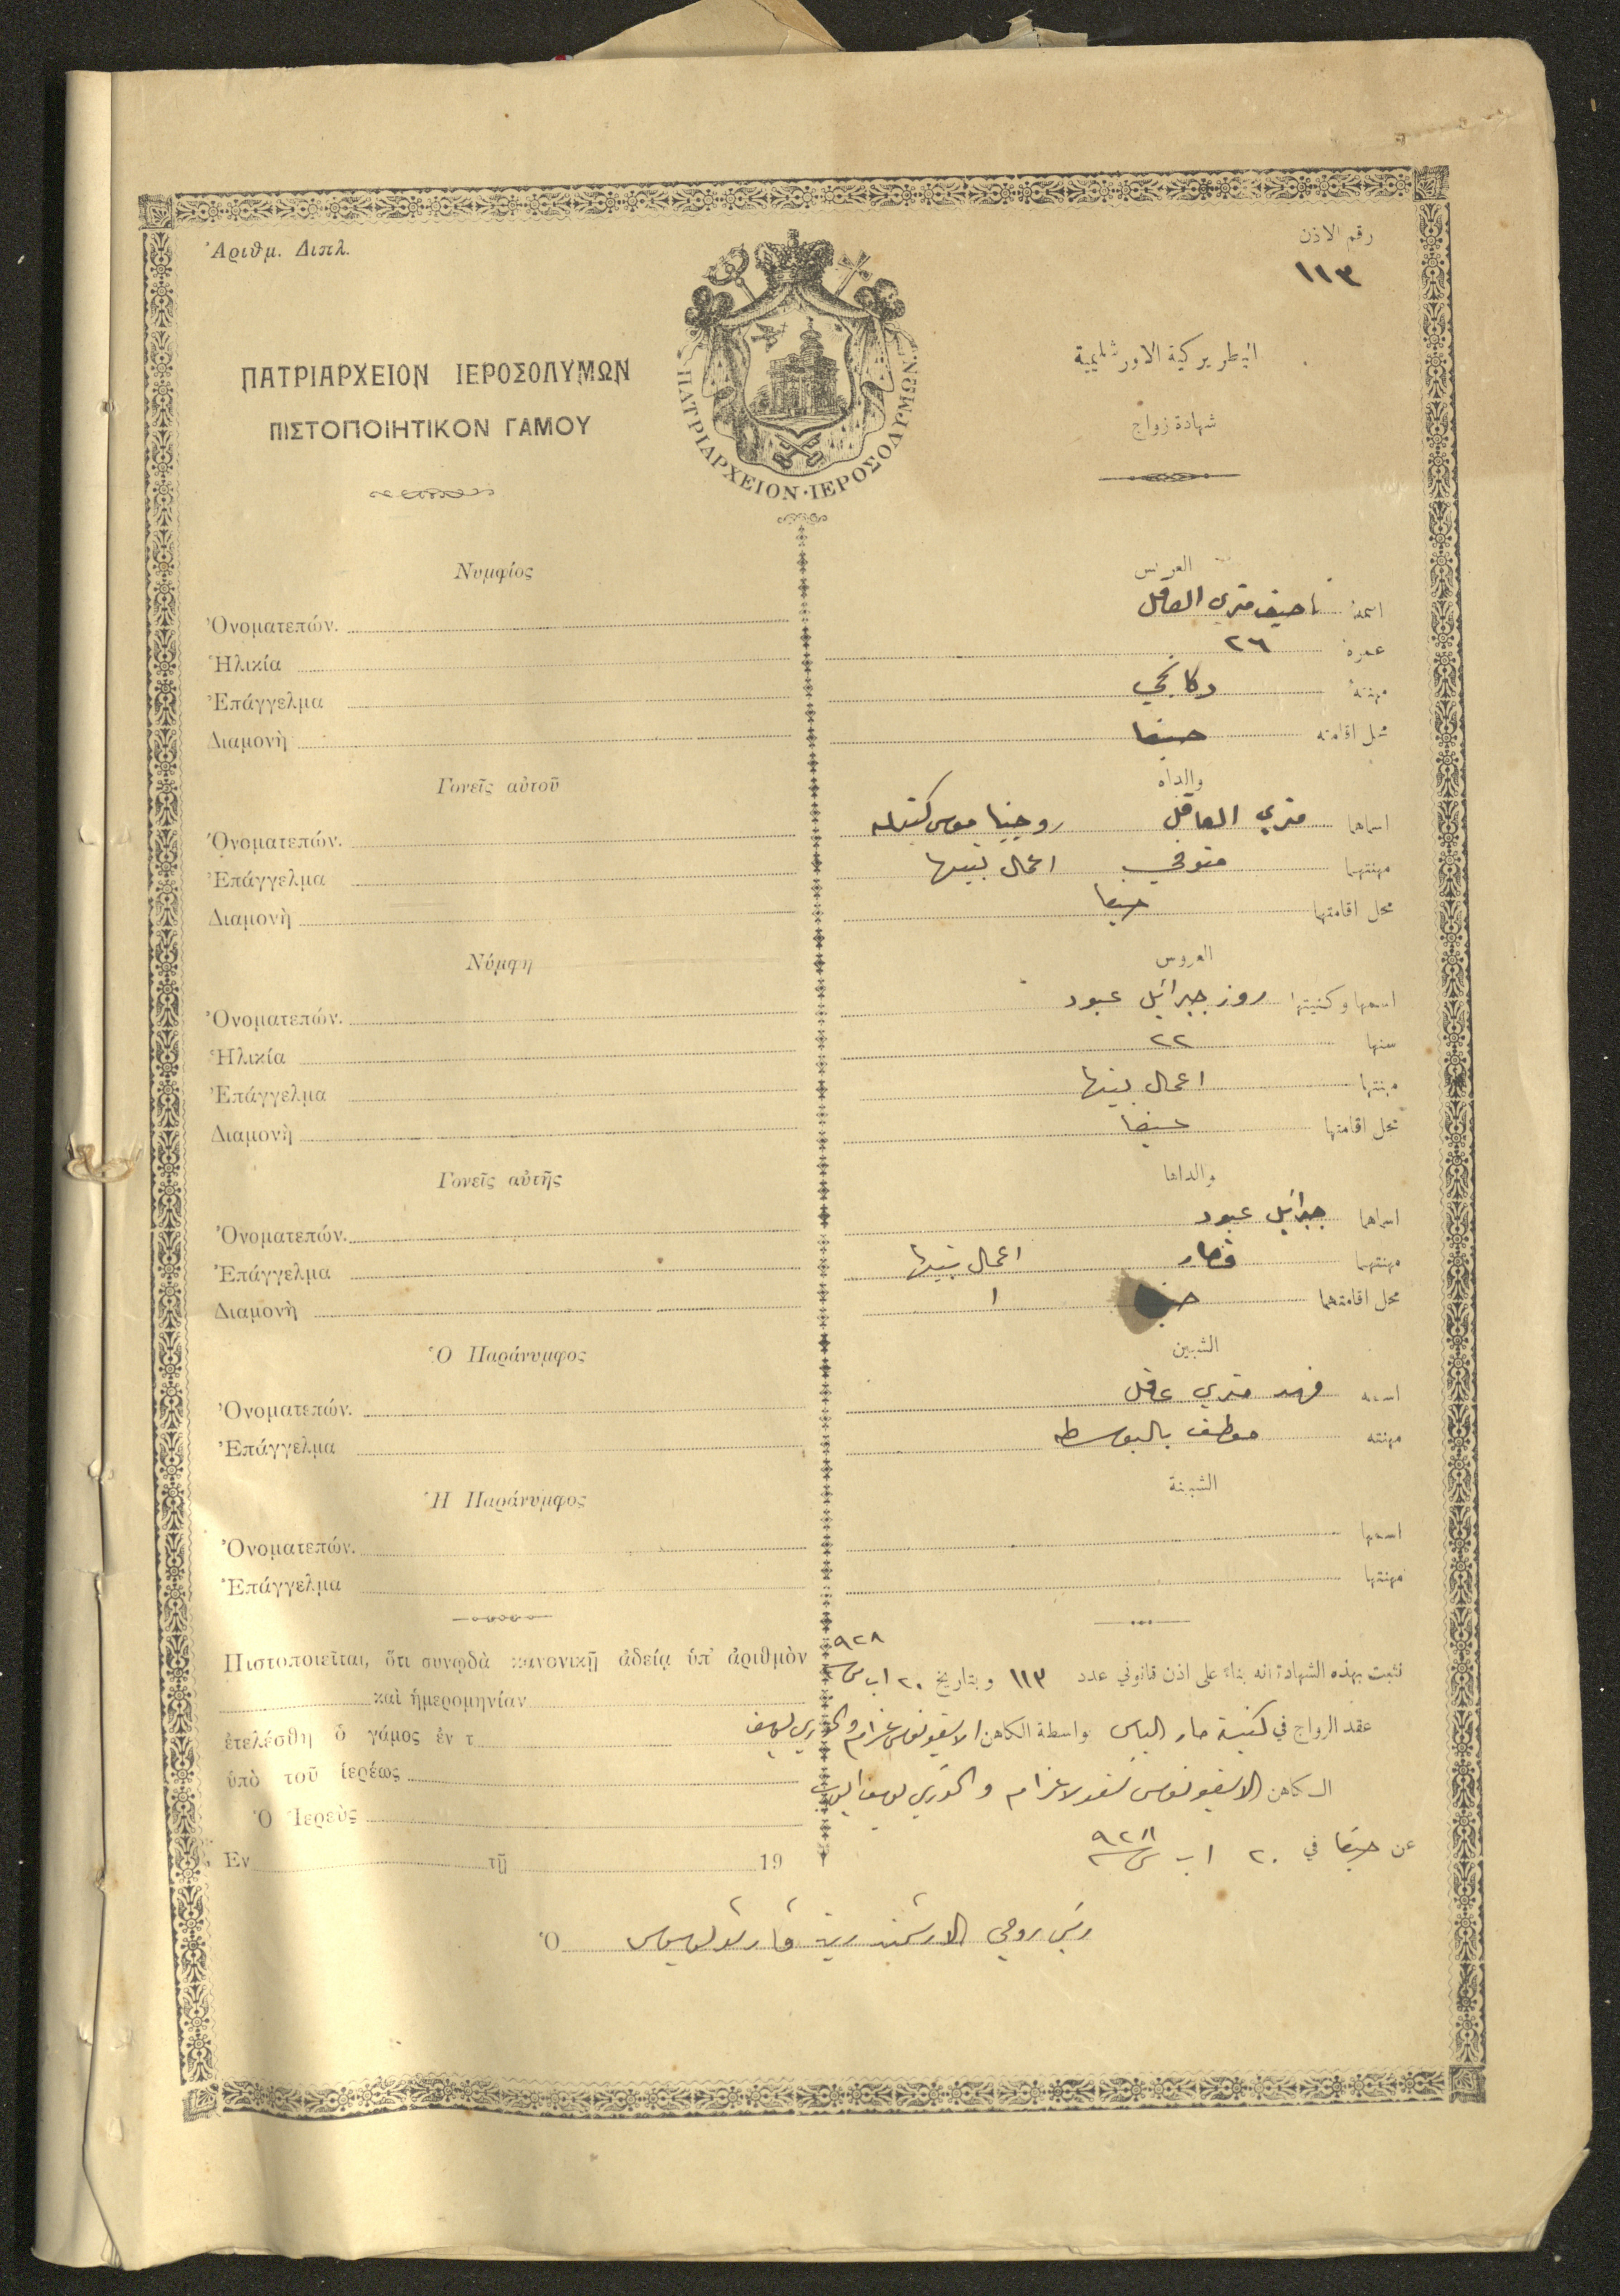 Ἀριθμ. Διπλ.
رقم الاذن
١١٣
ΠΑΤΡΙΑΡΧΕΙΟΝ ΙΕΡΟΣΟΛΥΜΩΝ
ΠΙΣΤΟΠΟΙΗΤΙΚΟΝ ΓΑΜΟΥ
ΠΑΤΡΙΑΡΧΕΙΟΝ·ΙΕΡΟΣΟΛΥΜΩΝ
البطريركية الاورشليمية
شهادة زواج
Νυμφίος
Ὀνοματεπών.
Ἡλικία
Ἐπάγγελμα
Διαμονὴ
Γονεῖς αὐτοῦ
Ὀνοματεπών.
Ἐπάγγελμα
Διαμονὴ
Νύμφη
Ὀνοματεπών.
Ἡλικία
Ἐπάγγελμα
Διαμονὴ
Γονεῖς αὐτῆς
Ὀνοματεπών.
Ἐπάγγελμα
Διαμονὴ
Ὁ Παράνυμφος
Ὀνοματεπών.
Ἐπάγγελμα
Ἡ Παράνυμφος
Ὀνοματεπών.
Ἐπάγγελμα
Πιστοποιεῖται, ὅτι συνῳδὰ κανονικῇ ἀδείᾳ ὑπ' ἀριθμὸν
καὶ ἡμερομηνίαν
ἐτελέσθη ὁ γάμος ἐν τ
ὑπὸ τοῦ ἱερέως
Ὁ Ἱερεὺς
Ἐν τῇ 19
العريس
اسمهُ ناصيف متري العاقل
عمرهُ ٢٦
مهنتهُ دكانجي
محل اقامته حيفا
والداه
اسماهما متري العاقل روجينا موسى
مهنتهما متوفي اعمال بيتها
محل اقامتهما حيفا
العروس
اسمها وكنيتها روز جبرائيل عبود
سنها ٢٢
مهنتها اعمال بيتها
محل اقامتها حيفا
والداها
اسماهما جبرائيل عبود
مهنتهما اعمال بيتها
محل اقامتهما
الشبين
اسمه فهد متري عاقل
مهنته موظف بالبوسطه
الشبينة
اسمها
مهنتها
نثبت بهذه الشهادة انه بناء على اذن قانوني عدد ١١٣ وبتاريخ ٢٠ اب سنة ٩٢٨
عقد الزواج في كنيسة مار الياس بواسطة الكاهن الايقونوس عزام والخوري يوسف
الكاهن الايقونوس نقولا عزام والخوري يوسف
عن حيفا في ٢٠ اب سنة ٩٢٨
Ὁ رئيس روحي الارشمندريت